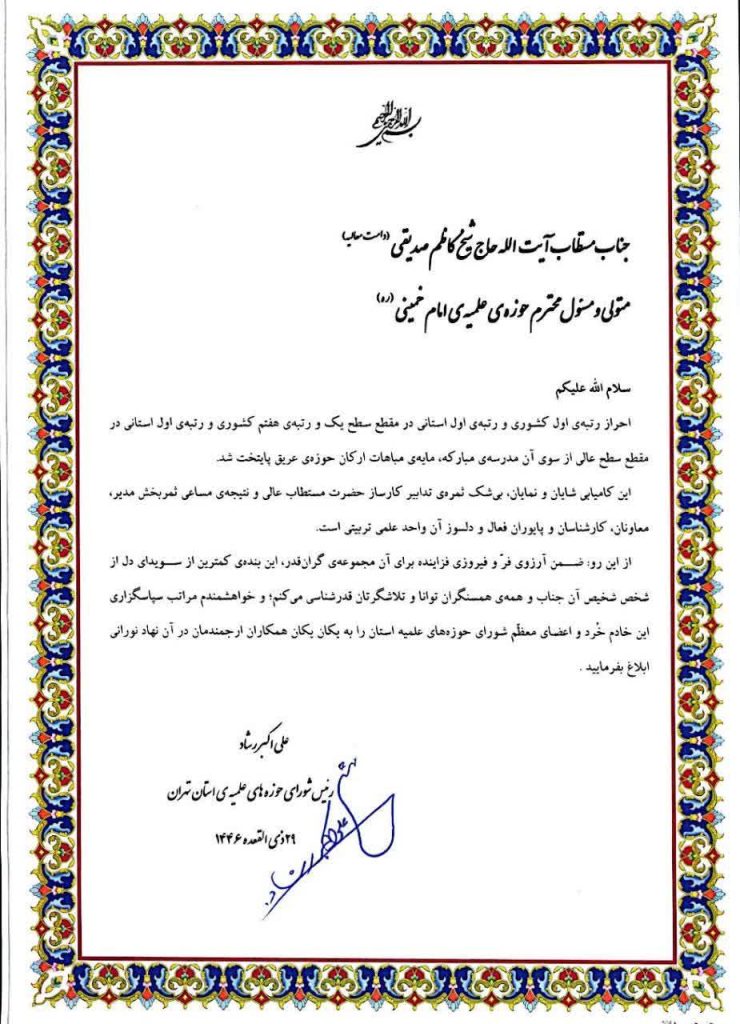 بسم الله الرحمن الرحیم
جناب مستطاب آیت الله حاج شیخ کاظم صدیقی (دامت معالیه)
متولی و مسئول محترم حوزه‌ی علمیه‌ی امام خمینی (ره)
سلام الله علیکم
احراز رتبه‌ی اول کشوری و رتبه‌ی اول استانی در مقطع سطح یک و رتبه‌ی هفتم کشوری و رتبه‌ی اول استانی در
مقطع سطح عالی از سوی آن مدرسه‌ی مبارکه، مایه‌ی مباهات ارکان حوزه‌ی عریق پایتخت شد.
این کامیابی شایان و نمایان، بی‌شک ثمره‌ی تدابیر کارساز حضرت مستطاب عالی و نتیجه‌ی مساعی ثمربخش مدیر،
معاونان، کارشناسان و پایوران فعال و دلسوز آن واحد علمی تربیتی است.
از این رو: ضمن آرزوی فرّ و فیروزی فزاینده برای آن مجموعه‌ی گران‌قدر، این بنده‌ی کمترین از سویدای دل از
شخص شخیص آن جناب و همه‌ی همسنگران توانا و تلاشگرتان قدرشناسی می‌کنم؛ و خواهشمندم مراتب سپاسگزاری
این خادم خُرد و اعضای معظّم شورای حوزه‌های علمیه استان را به یکان یکان همکاران ارجمندمان در آن نهاد نورانی
ابلاغ بفرمایید .
علی اکبر رشاد
رئیس شورای حوزه های علمیه ی استان تهران
۲۹ ذی القعده ۱۴۴۶